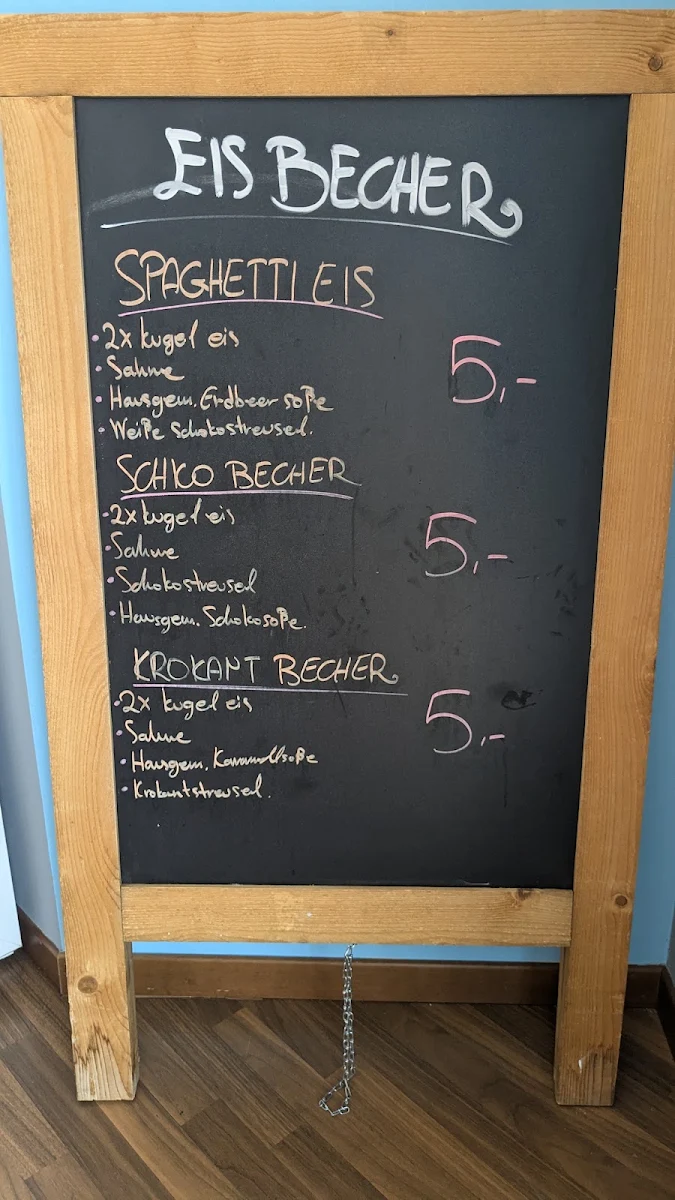 EIS BECHER
SPAGHETTI EIS
• 2x kugel eis
• Sahne
• Hausgem. Erdbeer soße
• Weiße Schokostreusel.
5,-
SCHKO BECHER
• 2x kugel eis
• Sahne
• Schokostreusel
• Hausgem. Schokosoße.
5,-
KROKANT BECHER
• 2x kugel eis
• Sahne
• Hausgem. Karamellsoße
• Krokantstreusel.
5,-